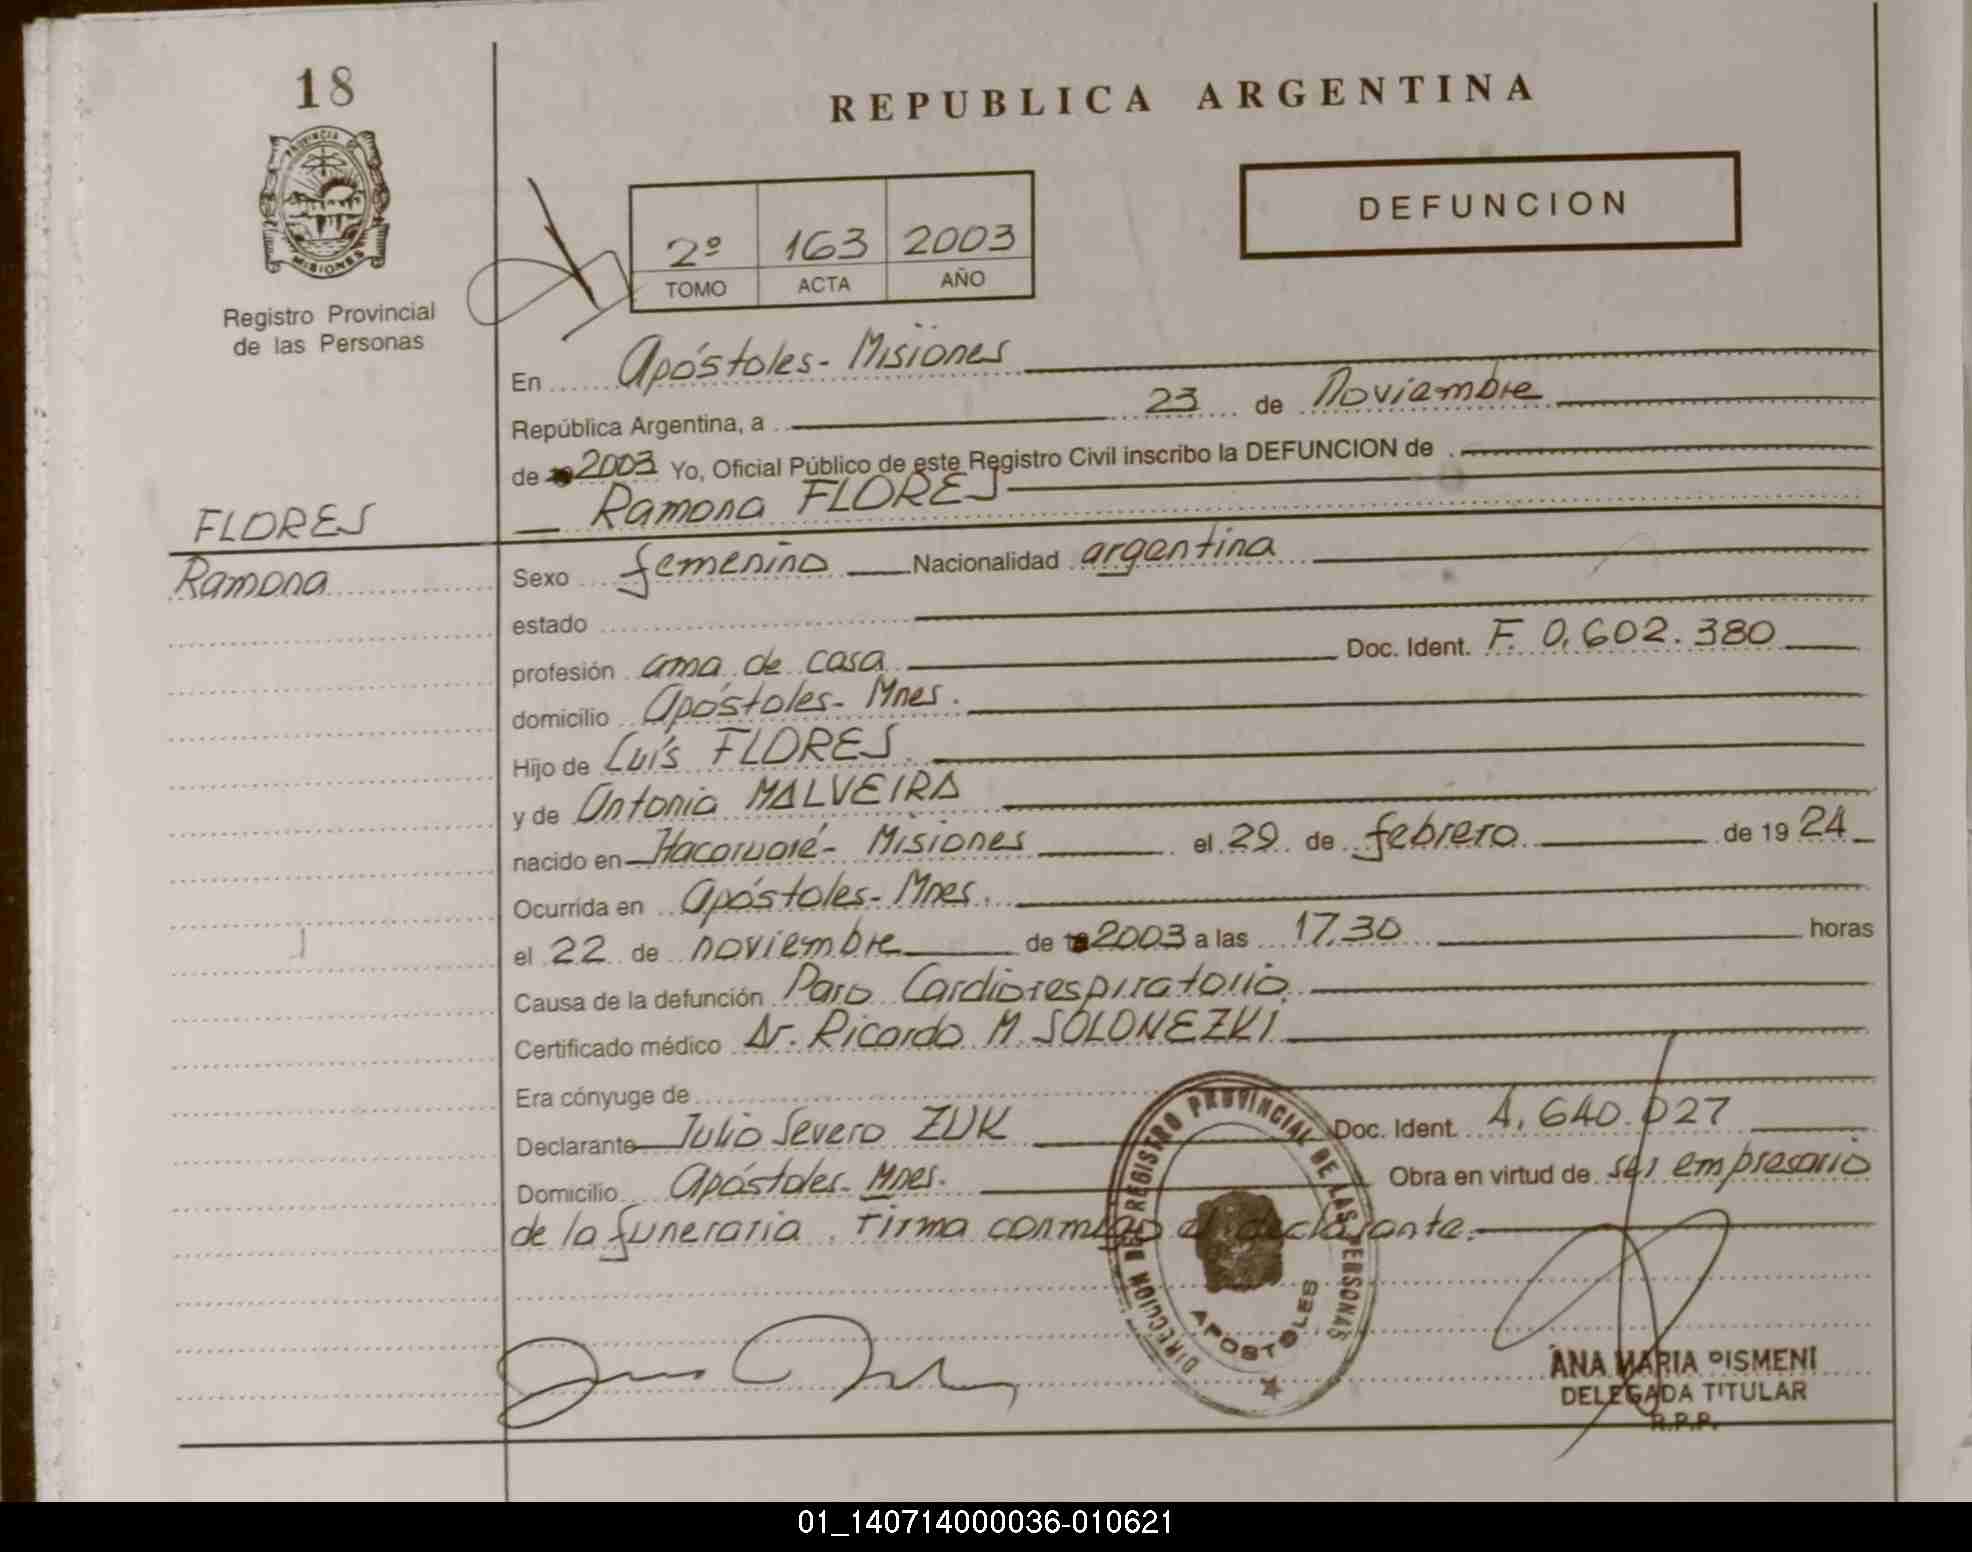 18
REPUBLICA ARGENTINA
PROVINCIA DE
MISIONES
DEFUNCION
2º 163 2003
TOMO ACTA AÑO
Registro Provincial
de las Personas
En Apóstoles - Misiones
República Argentina, a 23 de Noviembre
de 2003 Yo, Oficial Público de este Registro Civil inscribo la DEFUNCION de
Ramona FLORES
FLORES
Ramona
Sexo femenino Nacionalidad argentina
estado
profesión ama de casa Doc. Ident. F. 0.602.380
domicilio Apóstoles - Mnes.
Hijo de Luís FLORES
y de Antonia MALVEIRA
nacido en Itacaruaré - Misiones el 29 de febrero de 19 24
Ocurrida en Apóstoles - Mnes.
el 22 de noviembre de 2003 a las 17.30 horas
Causa de la defunción Paro Cardiorespiratorio
Certificado médico Dr. Ricardo M. SOLONEZKI
Era cónyuge de
Declarante Julio Severo ZUK Doc. Ident. 4.640.027
Domicilio Apóstoles - Mnes. Obra en virtud de ser empresario
de la funeraria. Firma conmigo el declarante.
DIRECCION DE REGISTRO PROVINCIAL DE LAS PERSONAS
APOSTOLES
ANA MARIA PISMENI
DELEGADA TITULAR
R.P.P.
01_140714000036-010621